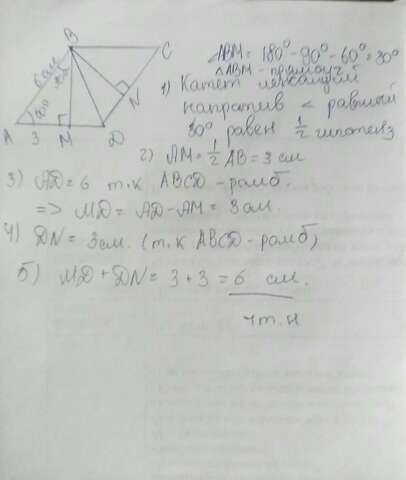 B
C
6 см
30°
60°
N
A 3 M D
∠ABM = 180° - 90° - 60° = 30°
△ABM - прямоуг.
1) Катет лежащий
напротив < равный
30° равен 1/2 гипотенз
2) AM = 1/2 AB = 3 см
3) AD = 6 т.к ABCD - ромб.
=> MD = AD - AM = 3 см.
4) DN = 3 см. (т.к ABCD - ромб)
5) MD + DN = 3 + 3 = 6 см.
чт.н